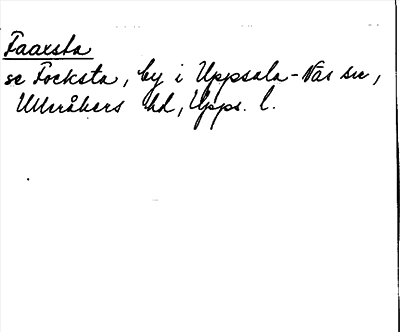 Faaxsta
se Focksta, by i Uppsala-Näs sn,
Ulleråkers hd, Upps. l.